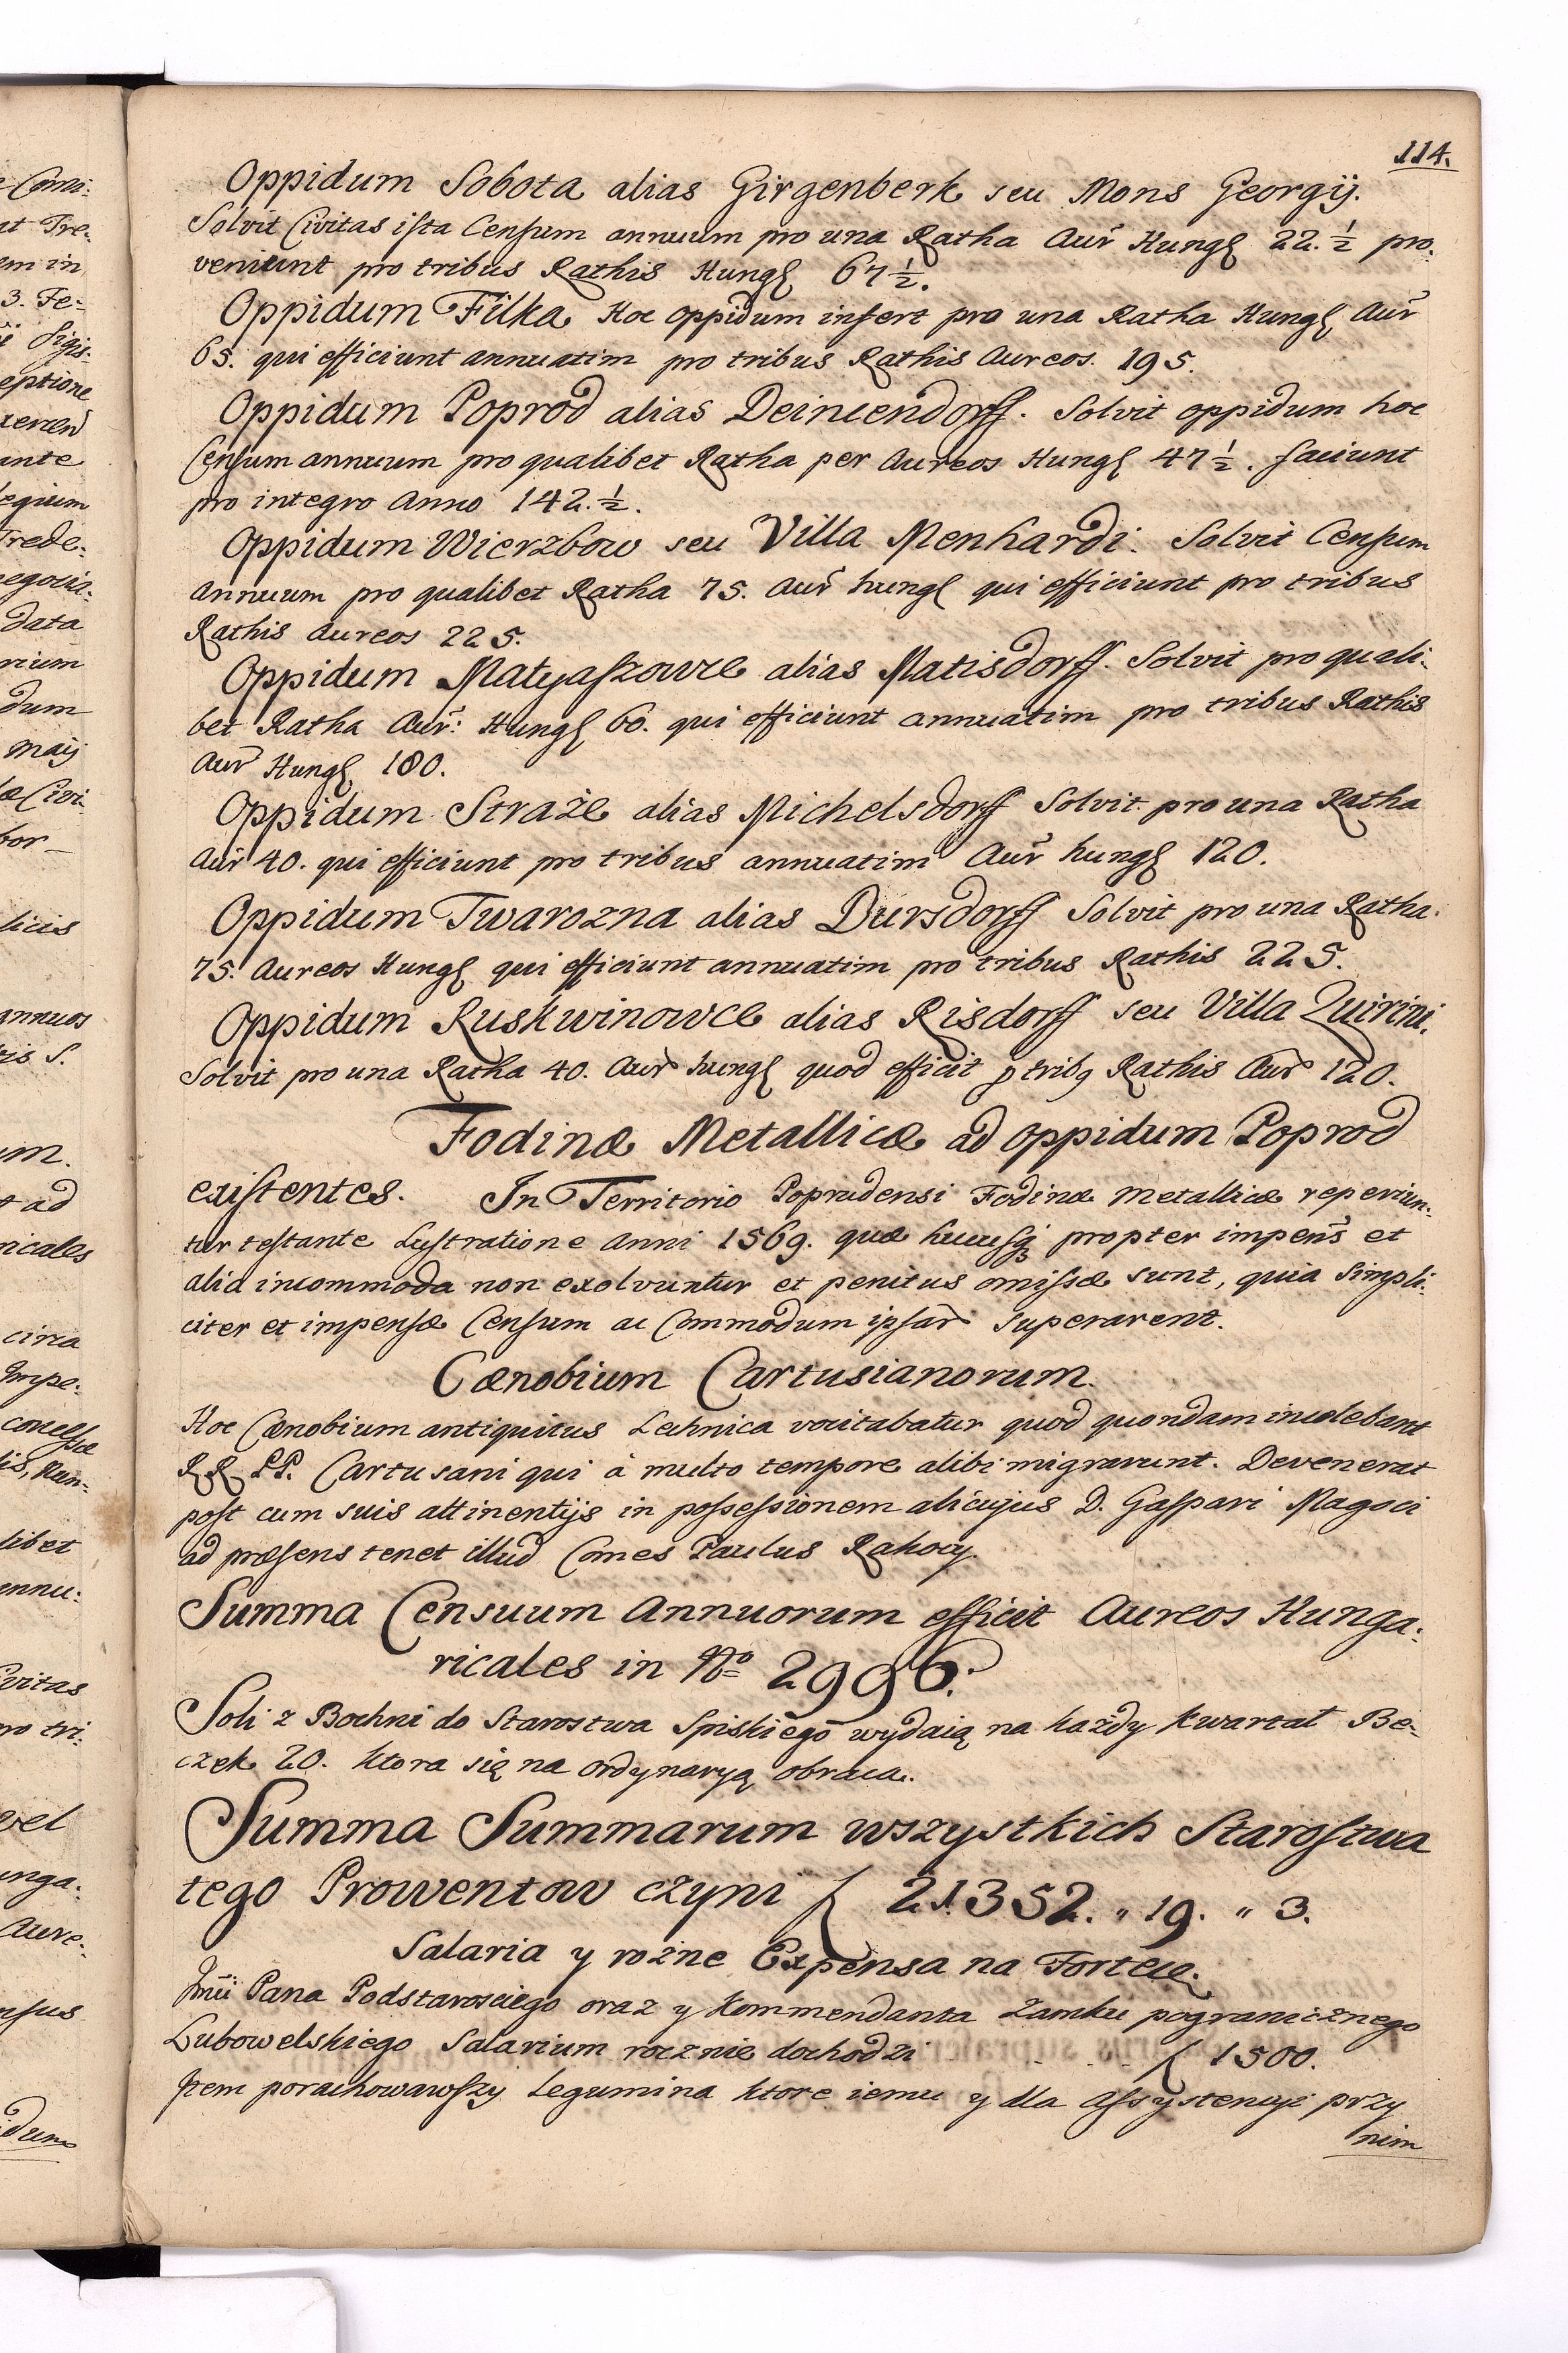 114.
Oppidum Sobota alias Girgenberk seu Mons Georgij.
Solvit Civitas ista Censum annuum pro una Ratha Aur Hungl 22. ½ pro:
veniunt pro tribus Rathis Hungl 67 ½.
Oppidum Filka Hoc oppidum infert pro una Ratha Hungl Aur
65. qui efficiunt annuatim pro tribus Rathis Aureos. 195.
Oppidum Poprod alias Deincendorff. Solvit oppidum hoc
Censum annuum pro qualibet Ratha per Aureos Hungl 47 ½. faciunt
pro integro Anno 142. ½.
Oppidum Wierzbow seu Villa Menhardi. Solvit Censum
Annuum pro qualibet Ratha 75. Aur hungl qui efficiunt pro tribus
Rathis Aureos 225.
Oppidum Matyaszowce alias Matisdorff. Solvit pro quali:
bet Ratha Aur: Hungl 60. qui efficiunt annuatim pro tribus Rathis
Aur Hungl 180.
Oppidum Straże alias Michelsdorff Solvit pro una Ratha
Aur 40. qui efficiunt pro tribus annuatim Aur hungl 120.
Oppidum Twarozna alias Dursdorff Solvit pro una Ratha.
75. Aureos Hungl qui efficiunt annuatim pro tribus Rathis 225.
Oppidum Ruskwinowce alias Risdorff seu Villa Quirini.
Solvit pro una Ratha 40. Aur hungl quod efficit p tribq Rathis Aur 120.
Fodinæ Metallicæ ad oppidum Poprod
existentes. In Territorio Popradensi Fodinæ metallicæ reperiun:
tur testante Lustratione Anni 1569. quæ hucusq propter impens et
alia incommoda non exolvuntur et penitus omissæ sunt, quia simpli:
citer et impensæ Censum ac Commodum ipsar superarent.
Cænobium Cartusianorum.
Hoc Cænobium antiquitus Lechnica vocitabatur quod quondam incolebant
RR. PP. Cartusani qui à multo tempore alibi migrarunt. Devenerat
post cum suis attinentijs in possessionem alicujus D. Gaspari Magoci
ad præsens tenet illud Comes Paulus Rakocy.
Summa Censuum Annuorum efficit Aureos Hunga:
ricales in No 2996.
Soli z Bochni do Starostwa Spiskiego wydaią na każdy kwartał Be:
czek 20. ktora się na ordynaryą obraca.
Summa Summarum wszystkich Starostwa
tego Prowentow czyni f 21352. " 19. " 3.
Salaria y rożne Expensa na Fortecę.
Jmci Pana Podstarosciego oraz y Kommendanta Zamku pogranicznego
Lubowelskiego Salarium rocznie dochodzi - - - f 1500.
Item porachowawszy Legumina ktore iemu y dla Assystencyi przy
nim